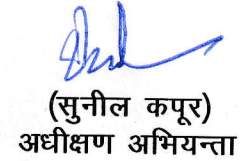 (सुनील कपूर)
अधीक्षण अभियन्ता